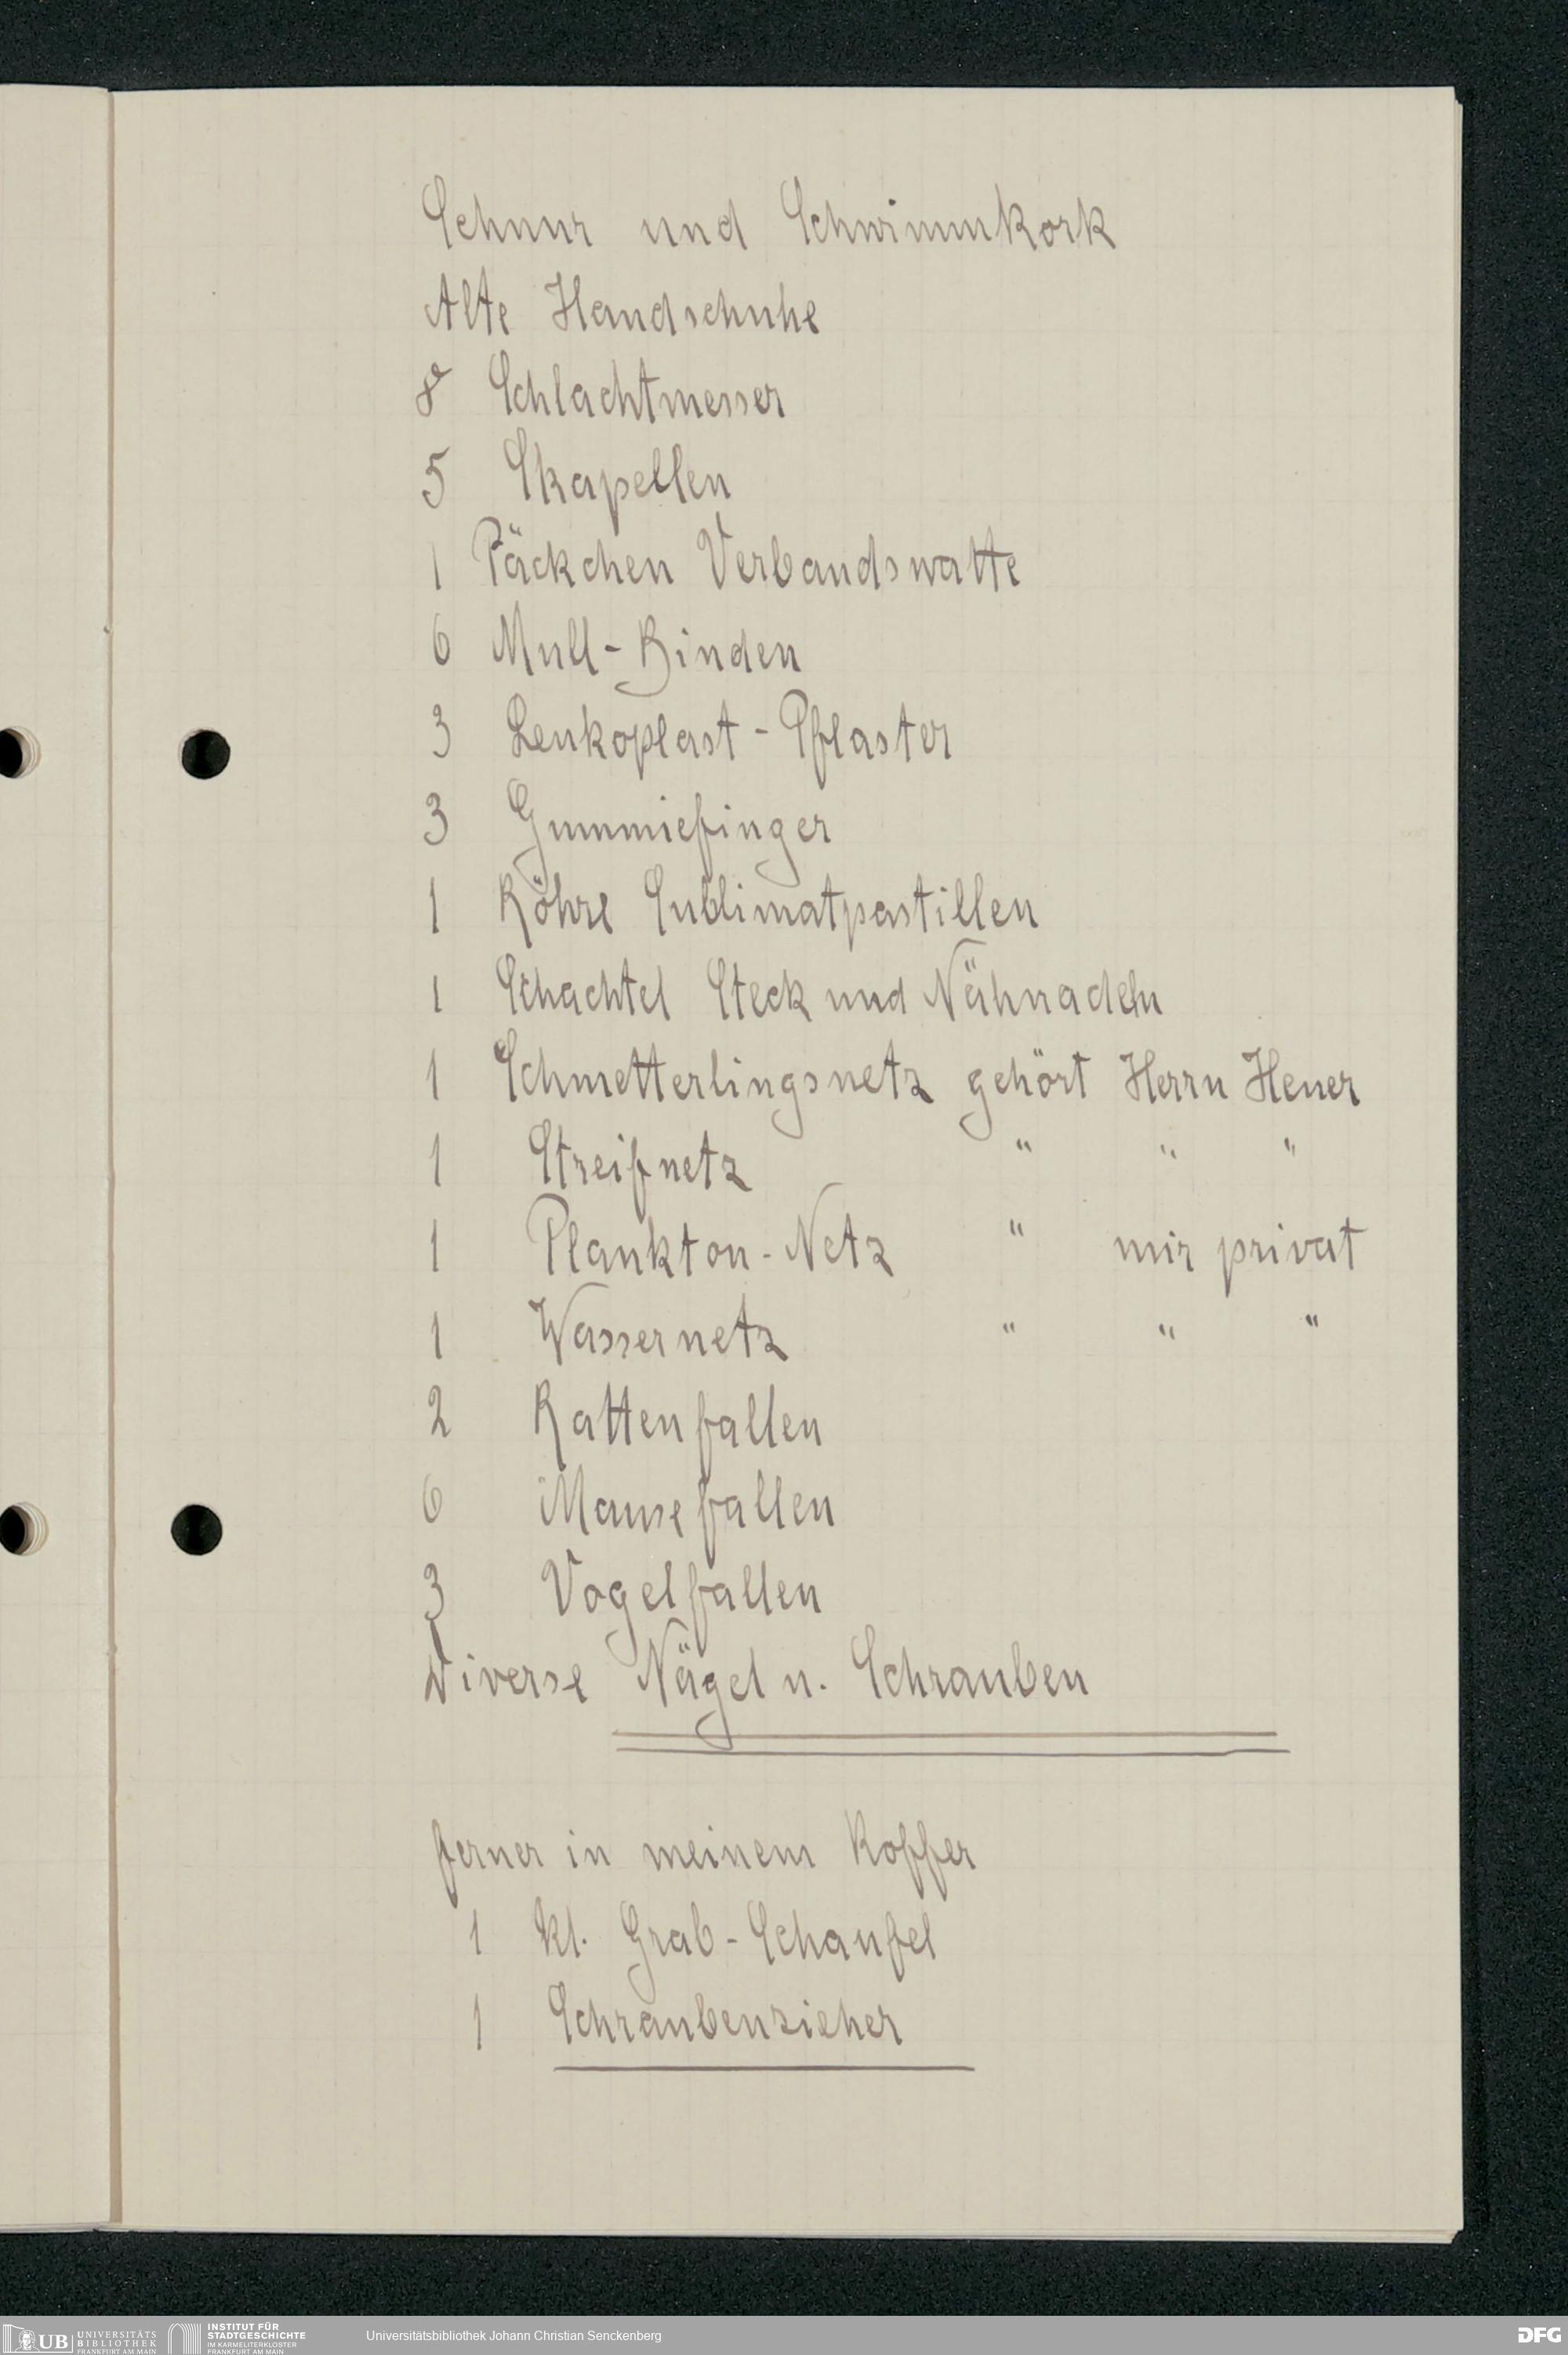 Schnur und Schwimmkork
Alte Handschuhe
8 Schlachtmesser
5 Skapellen
1 Päckchen Verbandswatte
6 Mull-Binden
3 Leukoplast-Pflaster
3 Gummiefinger
1 Röhre Sublimatpastillen
1 Schachtel Steck und Nähnadeln
1 Schmetterlingsnetz gehört Herrn Heuer
1 Streifnetz " " "
1 Plankton-Netz " mir privat
1 Wassernetz " " "
2 Rattenfallen
6 Mausefallen
3 Vogelfallen
Diverse Nägel u. Schrauben
ferner in meinem Koffer
1 kl. Grab-Schaufel
1 Schraubenzieher
UB UNIVERSITÄTS BIBLIOTHEK FRANKFURT AM MAIN
INSTITUT FÜR STADTGESCHICHTE IM KARMELITERKLOSTER FRANKFURT AM MAIN
Universitätsbibliothek Johann Christian Senckenberg
DFG